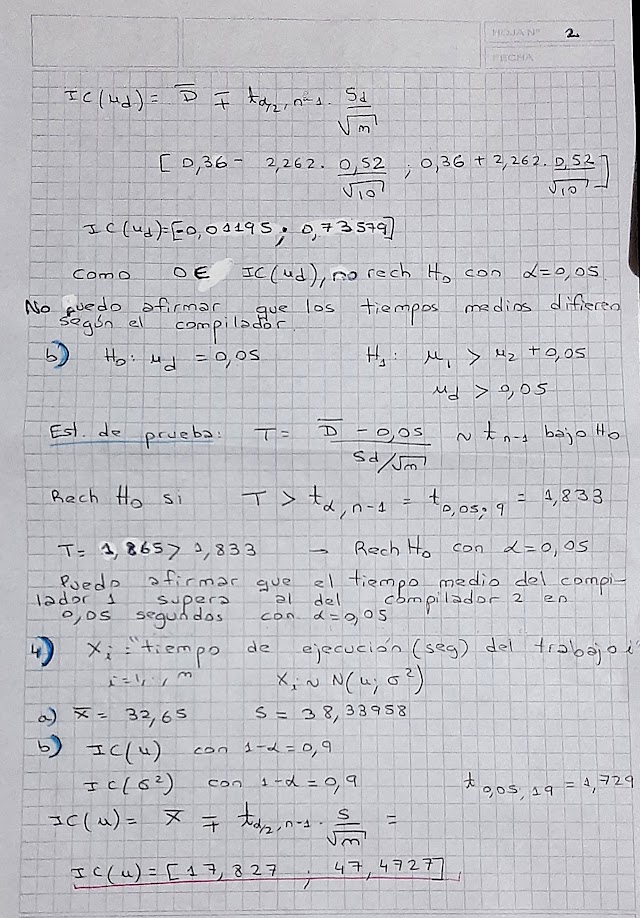 HOJA Nº 2
FECHA
IC(μd) = D̄ ∓ tα/2, n-1 · Sd/√n
[0,36 - 2,262 · 0,52/√10 ; 0,36 + 2,262 · 0,52/√10]
IC(μd)=[-0,01195 ; 0,73579]
como 0 ∈ IC(μd), no rech H0 con α=0,05.
No puedo afirmar que los tiempos medios difieren
según el compilador.
b) H0: μd = 0,05 H1: μ1 > μ2 + 0,05
μd > 0,05
Est. de prueba: T = (D̄ - 0,05)/(Sd/√n) ~ tn-1 bajo H0
Rech H0 si T > tα, n-1 = t0,05; 9 = 1,833
T = 1,865 > 1,833 → Rech H0 con α=0,05
Puedo afirmar que el tiempo medio del compi-
lador 1 supera al del compilador 2 en
0,05 segundos con α=0,05
4) Xi = "tiempo de ejecución (seg) del trabajo i"
i=1,.., n Xi ~ N(μ; σ²)
a) x̄ = 32,65 S = 38,33958
b) IC(μ) con 1-α=0,9
IC(σ²) con 1-α=0,9 t0,05, 19 = 1,729
IC(μ) = X̄ ∓ tα/2, n-1 · S/√n =
IC(μ) = [17,827 ; 47,4727]